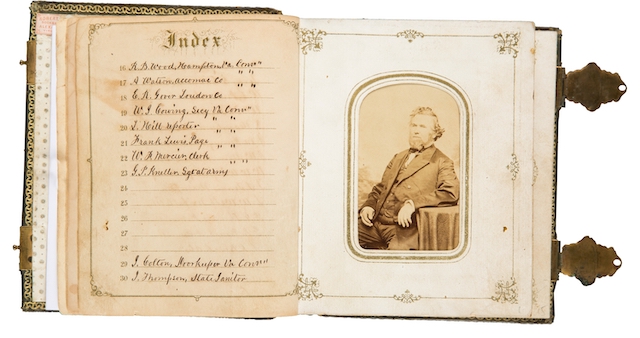 Index
16 R. B. Wood, Hampton, Va. Conv"
17 A Watson accomac Co " "
18 C. R. Grover Loudon Co
19 W. J. Cowing, Secy Va Conv"
20 L. Hill reporter " "
21 Frank Lewis Page " "
22 W. R Mercier, clerk " "
23 G. P. Sgt at arms
24
25
26
27
28
29 J. Colton, Doorkeeper Va Conv""
30 J. Thompson, State Janitor